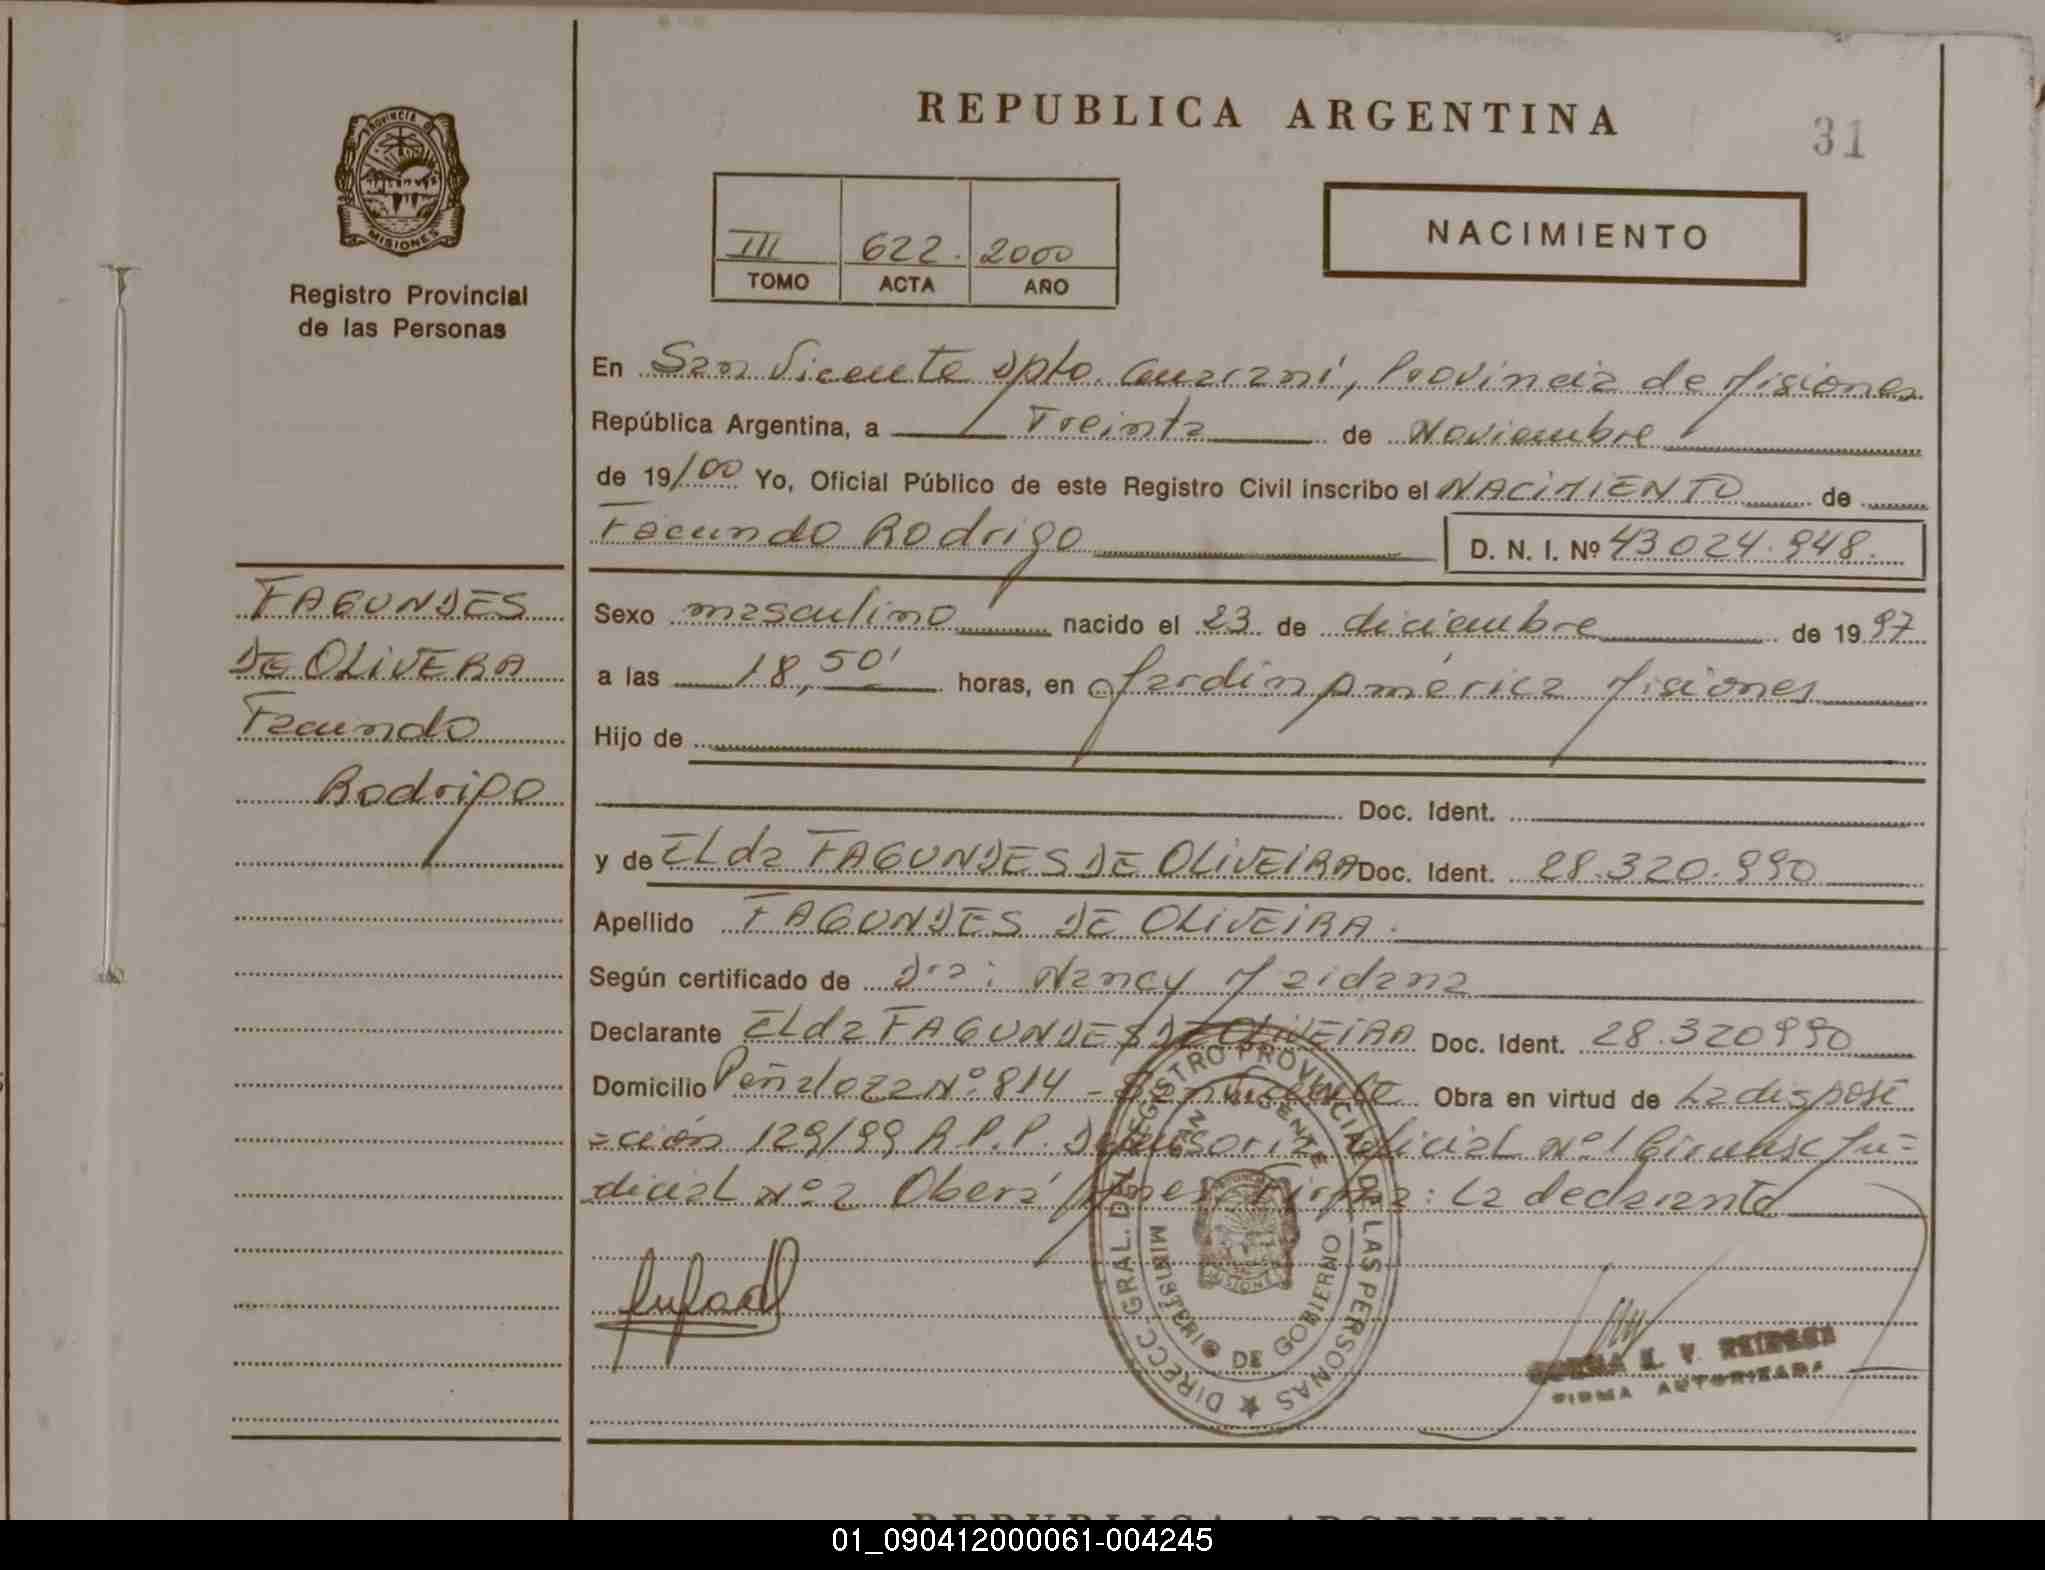 REPUBLICA ARGENTINA
31
PROVINCIA DE MISIONES
Registro Provincial
de las Personas
III 622. 2000
TOMO ACTA AÑO
NACIMIENTO
En San Vicente Dpto. Guaraní, Provincia de Misiones
República Argentina, a Treinta de Noviembre
de 19/00 Yo, Oficial Público de este Registro Civil inscribo el NACIMIENTO de
Facundo Rodrigo D. N. I. Nº 43024.948.
FAGUNDES
DE OLIVERA
Facundo
Rodrigo
Sexo masculino nacido el 23 de diciembre de 1997
a las 18,50' horas, en Jardin América Misiones
Hijo de
Doc. Ident.
y de Elda FAGUNDES DE OLIVEIRA Doc. Ident. 28.320.990
Apellido FAGUNDES DE OLIVEIRA.
Según certificado de Dra: Nancy Maidana
Declarante Elda FAGUNDES DE OLIVEIRA Doc. Ident. 28.320990
Domicilio Peñaloza Nº 814 - San Vicente Obra en virtud de La disposi
=ción 129/99 R.P.P. Defensoria Oficial Nº 1 Circunsc Ju=
dicial Nº 2 Oberá Mnes. Firma: La declarante
DIRECC. GRAL. DEL REGISTRO PROVINCIAL DE LAS PERSONAS
SAN VICENTE
MISIONES
MINISTERIO DE GOBIERNO
FIRMA AUTORIZADA
REPUBLICA ARGENTINA
01_090412000061-004245